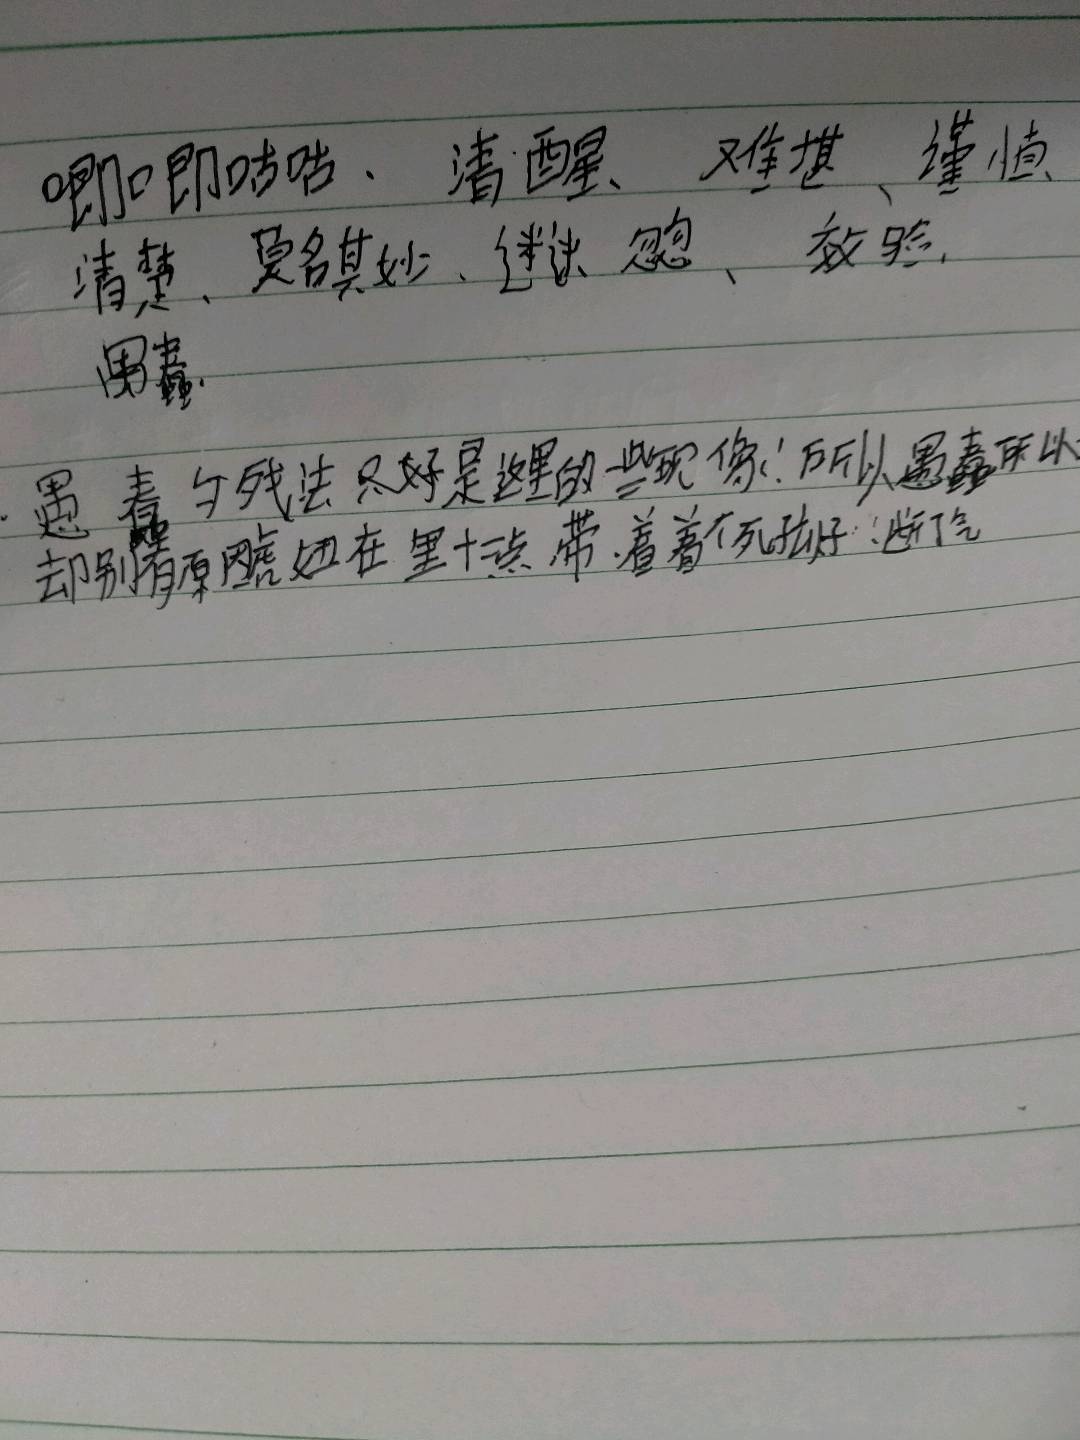 唧唧咕咕、清醒、难堪、谨慎、
清楚、莫名其妙、迷迷忽忽、效验、
愚蠢、
愚蠢 法只好是这里的一些现像！所以愚蠢所以
却别有原因 在里十点带着着 死 好 断了气